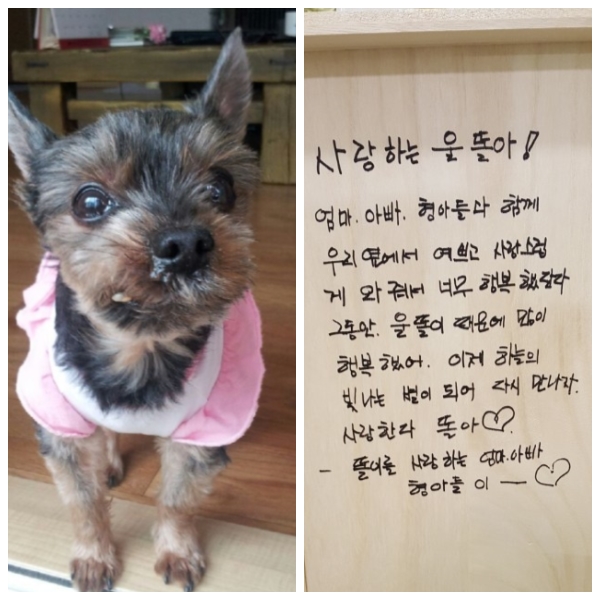 사랑하는 울 똘아!
엄마. 아빠. 형아들과 함께
우리 옆에서 여쁘고 사랑스럽
게 와 줘서 너무 행복했단다
그동안. 울 똘이 때문에 많이
행복했어. 이제 하늘의
빛나는 별이 되어 다시 만나자.
사랑한다 똘아♡.
- 똘이를 사랑하는 엄마.아빠
형아들이 — ♡